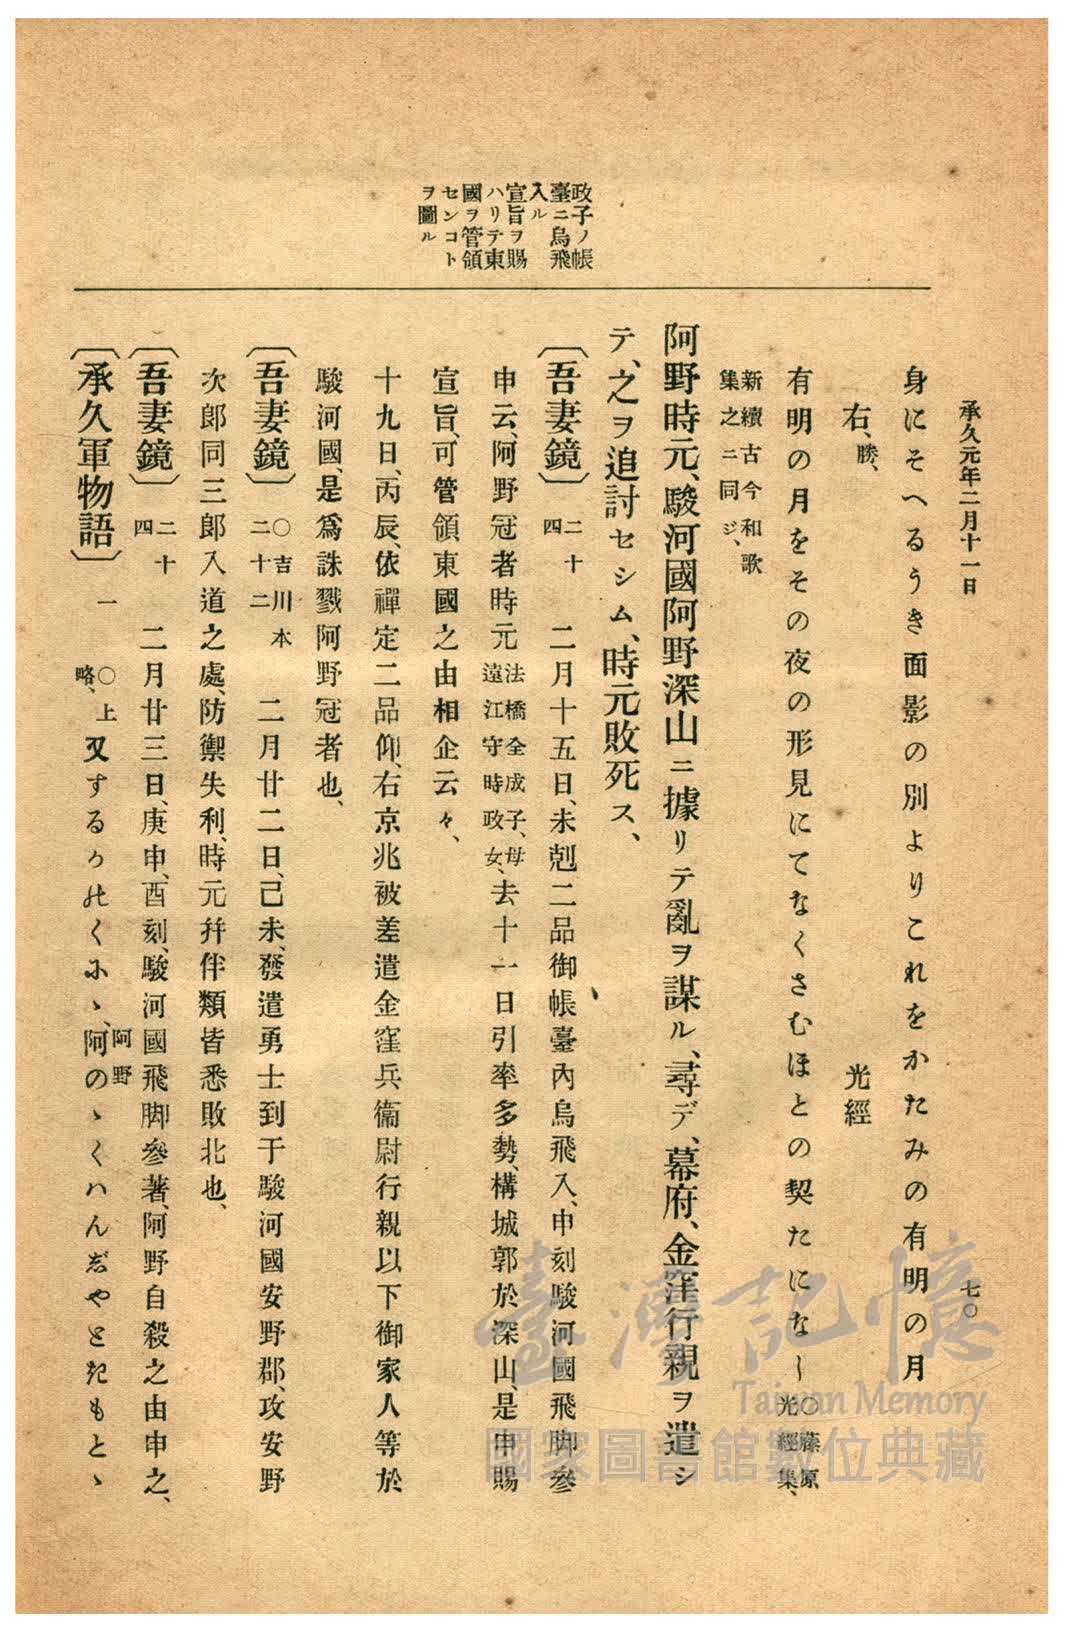 承久元年二月十一日
七〇
身にそへるうき面影の別よりこれをかたみの有明の月
右、勝、
光經
有明の月をその夜の形見にてなくさむほとの契たになし〇藤原光經集、
新續古今和歌集之ニ同ジ、
阿野時元、駿河國阿野深山ニ據リテ亂ヲ謀ル、尋デ、幕府、金窪行親ヲ遣シ
テ、之ヲ追討セシム、時元敗死ス、
政子ノ帳
臺ニ烏飛
入ル
宣旨ヲ賜
ハリテ東
國ヲ管領
センコト
ヲ圖ル
〔吾妻鏡〕二十四 二月十五日、未剋二品御帳臺內烏飛入、申刻駿河國飛脚參
申云、阿野冠者時元法橋全成子、母遠江守時政女、去十一日引率多勢、構城郭於深山、是申賜
宣旨、可管領東國之由相企云々、
十九日、丙辰、依禪定二品仰、右京兆被差遣金窪兵衞尉行親以下御家人等於
駿河國、是爲誅戮阿野冠者也、
〔吾妻鏡〕〇吉川本二十二 二月廿二日、己未、發遣勇士到于駿河國安野郡、攻安野
次郎同三郎入道之處、防禦失利、時元幷伴類皆悉敗北也、
〔吾妻鏡〕二十四 二月廿三日、庚申、酉刻、駿河國飛脚參著、阿野自殺之由申之、
〔承久軍物語〕一 〇上略、又するかのくにゝ、阿野阿のゝくハんじやときもとゝ
臺灣記憶
Taiwan Memory
國家圖書館數位典藏